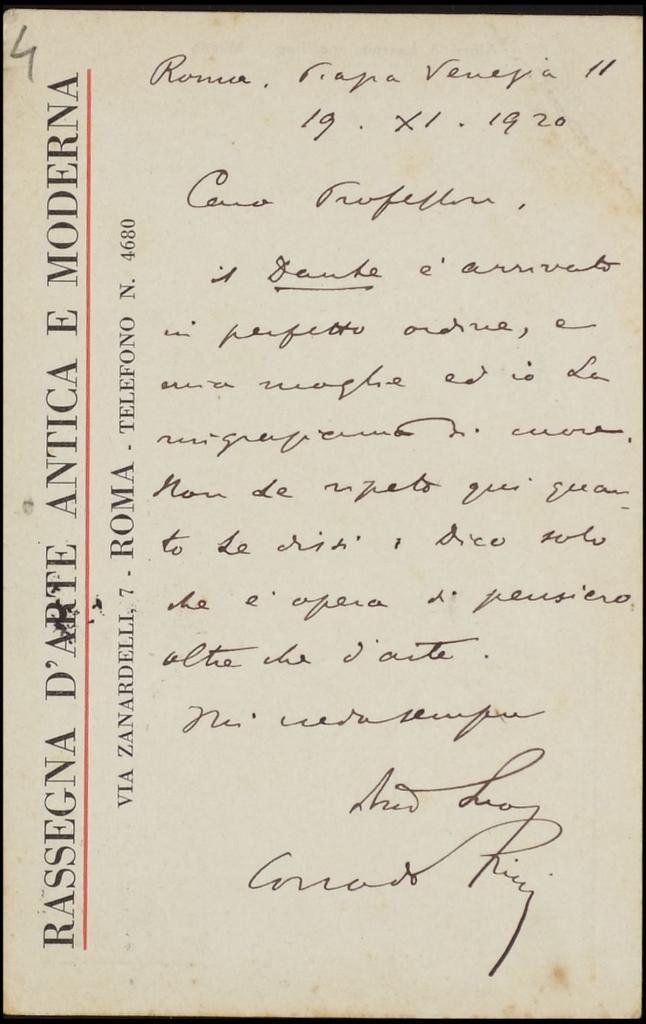 4
RASSEGNA D'ARTE ANTICA E MODERNA
VIA ZANARDELLI, 7 - ROMA - TELEFONO N. 4680
Roma. Piazza Venezia 11
19. XI. 1920
Caro Professore,
il Dante è arrivato
in perfetto ordine, e
mia moglie ed io La
ringraziamo di cuore.
Non Le ripeto qui quan-
to Le dissi: Dico solo
che è opera di pensiero
oltre che d'arte.
Mi creda sempre
Suo
Corrado Ricci